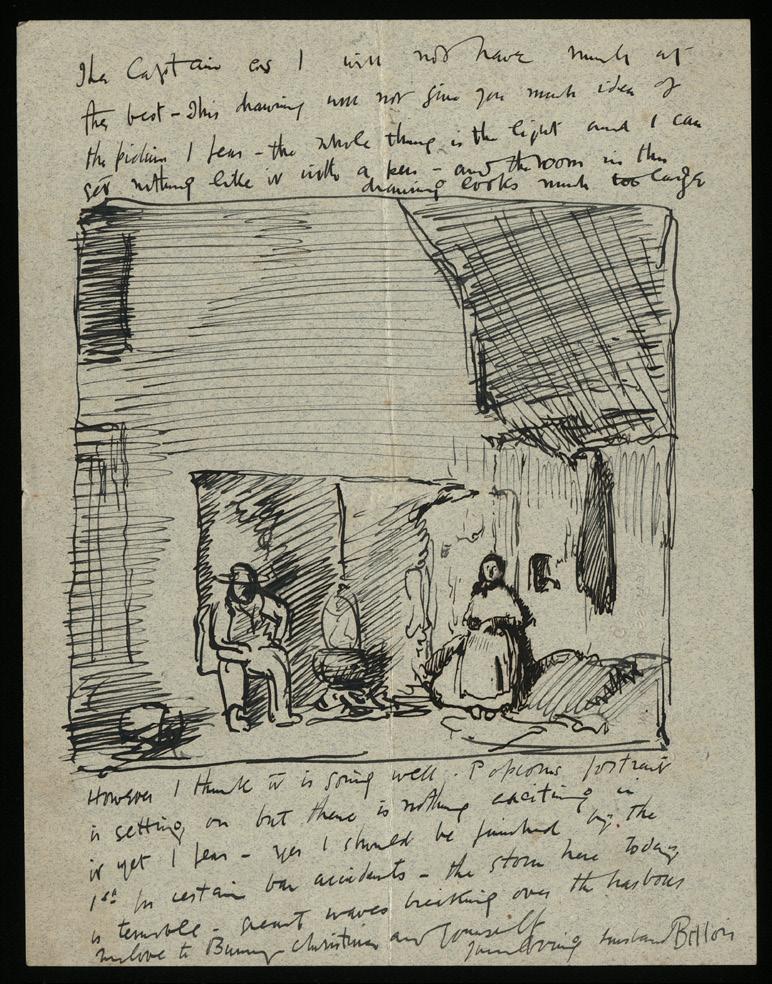 the Captain as I will not have much at
the best – This drawing will not give you much idea of
the picture I fear – the whole thing is the light and I can
get nothing like it with a pen – and the room in this
drawing looks much too large
However I think it is going well. Popcorns portrait
is getting on but there is nothing exciting in
it yet I fear – yes I should be finished by the
1st for certain bar accidents – the storm here today
is terrible – great waves breaking over the harbour
my love to Bunny Christina and yourself
your loving husband